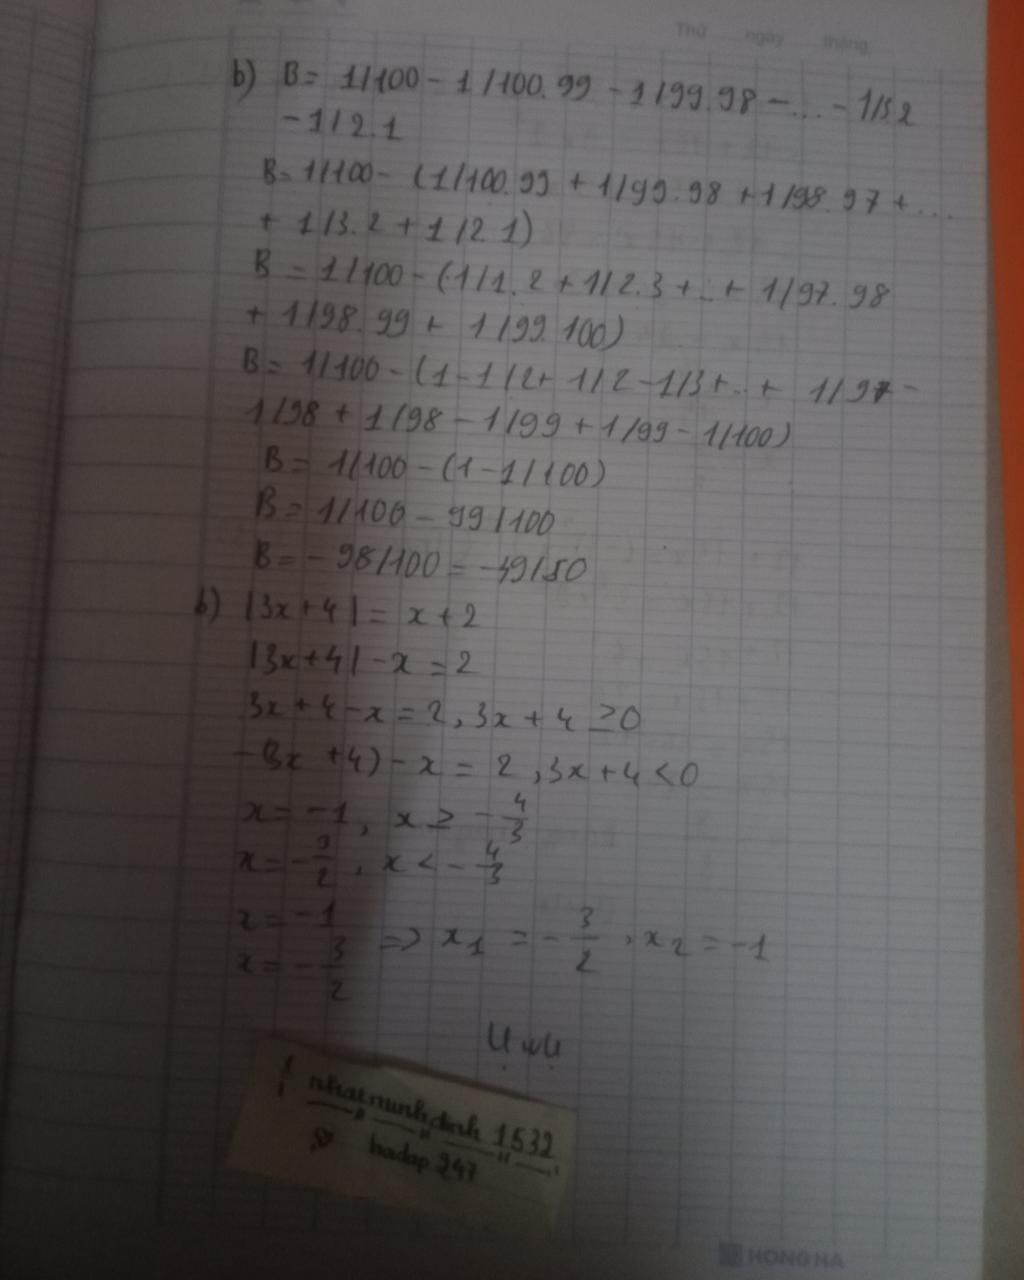 Thứ ngày tháng
b) B = 1/100 - 1/100.99 - 1/99.98 - ... - 1/3.2
- 1/2.1
B = 1/100 - (1/100.99 + 1/99.98 + 1/98.97 + ...
+ 1/3.2 + 1/2.1)
B = 1/100 - (1/1.2 + 1/2.3 + ... + 1/97.98
+ 1/98.99 + 1/99.100)
B = 1/100 - (1 - 1/2 + 1/2 - 1/3 + ... + 1/97 -
1/98 + 1/98 - 1/99 + 1/99 - 1/100)
B = 1/100 - (1 - 1/100)
B = 1/100 - 99/100
B = - 98/100 = -49/50
b) |3x + 4| = x + 2
|3x + 4| - x = 2
3x + 4 - x = 2, 3x + 4 ≥ 0
-(3x + 4) - x = 2, 3x + 4 < 0
x = -1, x ≥ -4/3
x = -3/2, x < -4/3
x = -1
x = -3/2 => x1 = -3/2, x2 = -1
UwU
nhatminhdinh1532
hadap247
HONG HA